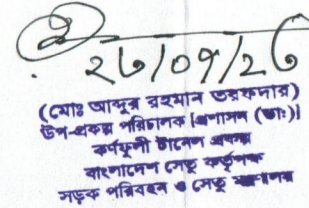 ২৬/০৭/২৩
(মোঃ আব্দুর রহমান তরফদার)
উপ-প্রকল্প পরিচালক [প্রশাসন (ভাঃ)]
কর্ণফুলী টানেল প্রকল্প
বাংলাদেশ সেতু কর্তৃপক্ষ
সড়ক পরিবহন ও সেতু মন্ত্রণালয়